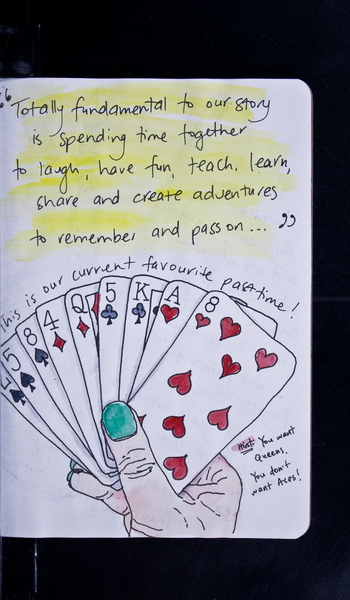 "Totally fundamental to our story
is spending time together
to laugh, have fun, teach, learn,
share and create adventures
to remember and pass on... "
This is our current favourite pastime!
5
8
4
Q
5
K
A
8
Hint: You want
Queens.
You don't
want Aces!